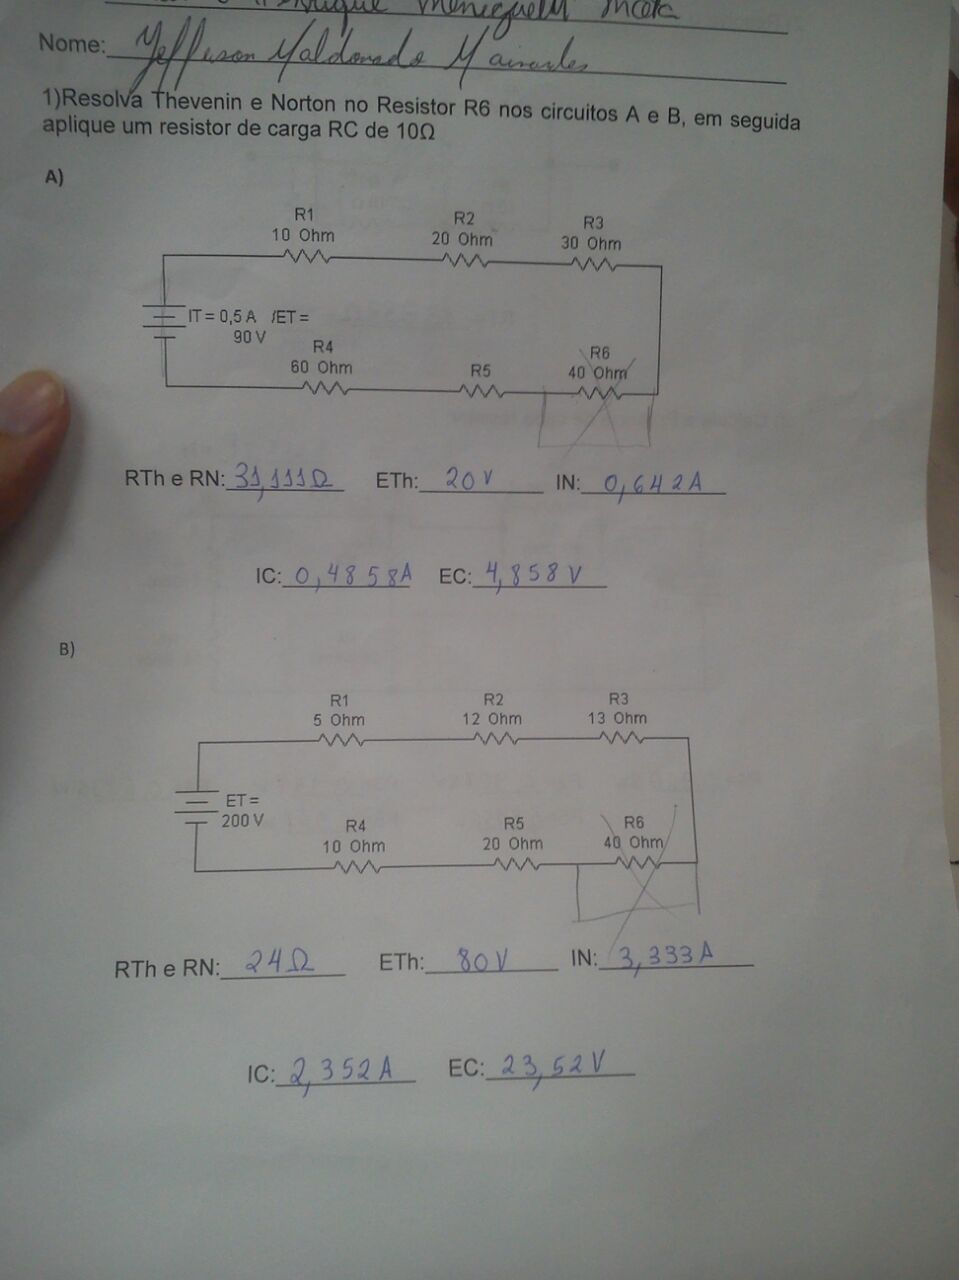 Nome: Jefferson Maldonado Mainardes
1)Resolva Thevenin e Norton no Resistor R6 nos circuitos A e B, em seguida
aplique um resistor de carga RC de 10Ω
A)
R1
10 Ohm
R2
20 Ohm
R3
30 Ohm
IT = 0,5 A /ET =
90 V
R4
60 Ohm
R5
R6
40 Ohm
RTh e RN: 31,111Ω ETh: 20 V IN: 0,642A
IC: 0,4858A EC: 4,858 V
B)
R1
5 Ohm
R2
12 Ohm
R3
13 Ohm
ET =
200 V
R4
10 Ohm
R5
20 Ohm
R6
40 Ohm
RTh e RN: 24Ω ETh: 80V IN: 3,333A
IC: 2,352A EC: 23,52V